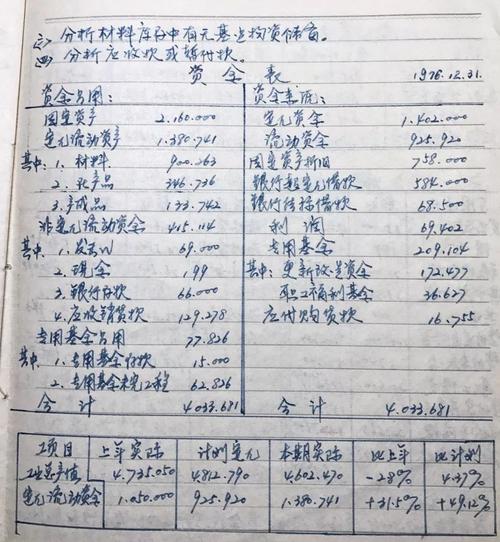 三、分析材料库存中有无基建物资储备。
四、分析应收款或暂付款。
资金表 1976.12.31.
资金占用： 资金来源：
固定资产 2.160.000 定元资金 1.402.000
定元流动资产 1.380.741 流动资金 925.920
其中：1、材料 900.263 固定资产折旧 758.000
2、在产品 346.736 银行超定元借款 584.000
3、产成品 133.742 银行结算借款 68.500
非定元流动资金 415.114 利润 69.402
其中：1、发出 69.000 专用基金 209.104
2、现金 199 其中：更新改造资金 172.477
3、银行存款 66.000 职工福利基金 36.627
4、应收销货款 129.278 应付购货款 16.755
专用基金占用 77.826
其中：1、专用基金存款 15.000
2、专用基金未完工程 62.826
合计 4.033.681 合计 4.033.681
项目 上年实际 计划定元 本期实际 比上年 比计划
工业总产值 4.735.050 4.812.790 4.602.470 -2.8% 4.37%
定元流动资金 1.050.000 925.920 1.380.741 +31.5% +49.12%